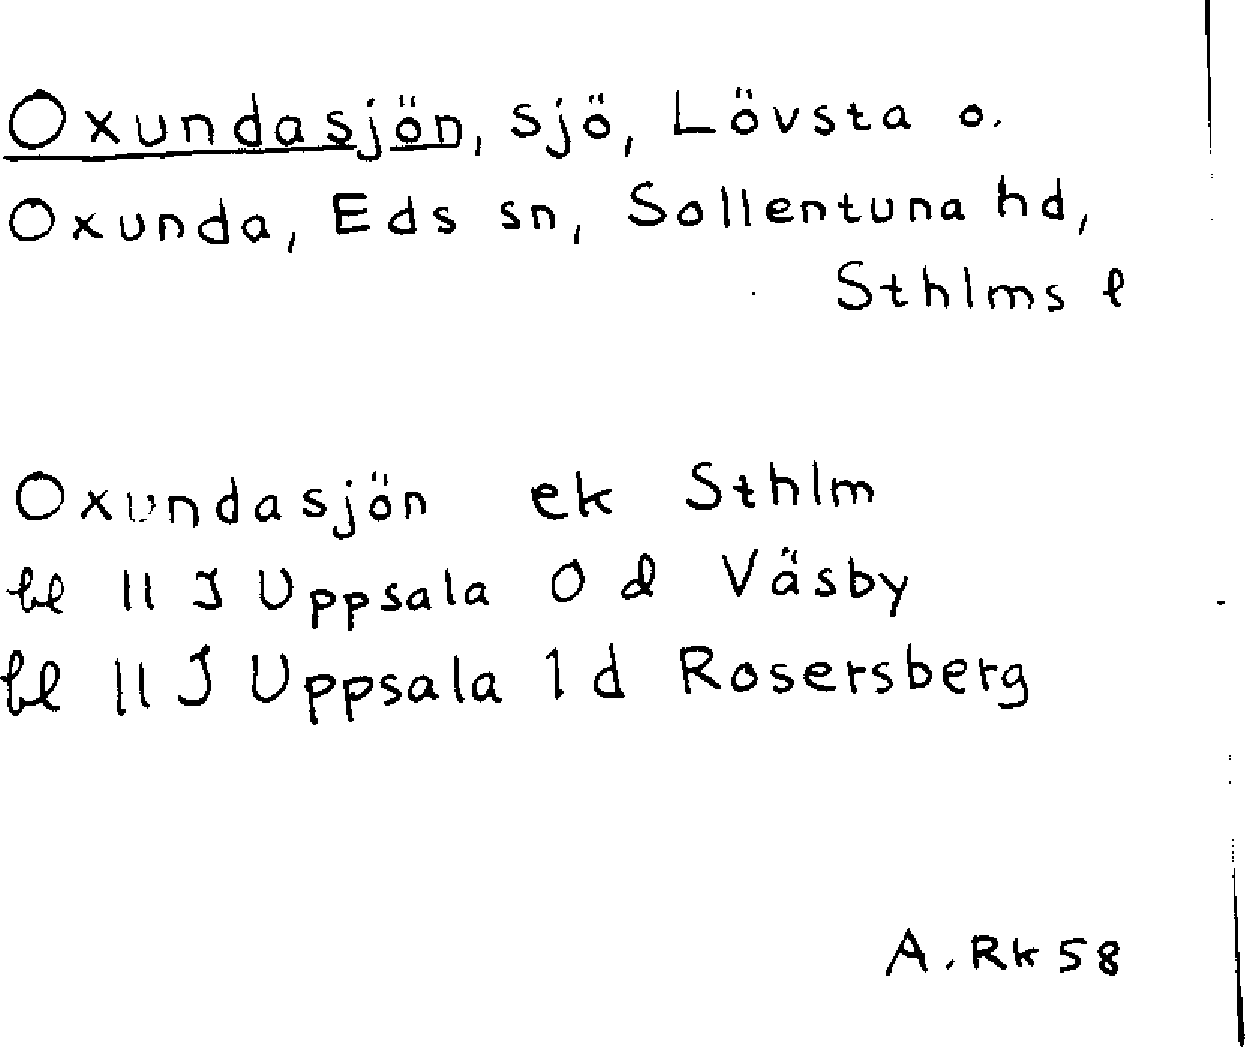 Oxundasjön, sjö, Lövsta o.
Oxunda, Eds sn, Sollentuna hd,
Sthlms l
Oxundasjön ek Sthlm
bl 11 I Uppsala 0 d Väsby
bl 11 I Uppsala 1 d Rosersberg
A. Rk 58